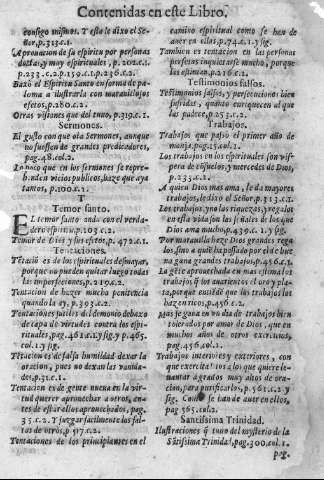 Contenidas en este Libro.
consigo mismos. Y esto le dixo el Señor, p.313.c.1.
Aprouacion de su espiritu por personas
doctas, y muy espirituales, p. 202.c.1.
p.233.c.2.p.159.c.1.p.236.c.2.
Baxò el Espiritu Santo en forma de paloma
a ilustrarla con marauillosos
efetos, p.280.c.2.
Otras visiones que del tuuo, p.319.c.1.
Sermones.
El gusto con que oìa Sermones, aunque
no fuessen de grandes predicadores,
pag.48.col.2.
que en los sermones se reprehenden
vicios publicos, haze que aya
tantos, p.100.c.2.
T
Temor santo.
EL temor santo anda con el verdadero
espiritu, p.103.c.2.
Temor de Dios y sus efetos, p. 472.c.1.
Tentaciones.
es de los espirituales desmayar,
porque no pueden quitar luego todas
las imperfecciones, p.219.c.2.
Tentacion de hazer mucha penitencia
quando la ay, p.393.c.2.
Tentaciones sutiles del demonio debaxo
de capa de virtudes contra los espirituales,
pag.461.c.1.y sig.y p.465.
col.1.y sig.
Tētacion es de falsa humildad dexar la
oracion, pues no dexan las viandades,
p.31.c.1.
Tentacion es de gente nueua en la virtud
querer aprouechar a otros, antes
de estar ellos aprouechados, pag.
35.c.2. Y juzgar facilmente los faltas
de otros, p 517.c.2.
Tentaciones de los principiantes en el
camino espiritual como se han de
auer en ellas, p.74.c.1.y sig.
Tambien es tentacion en las personas
perfetas inquietarse mucho, porque
las estiman, p.216.c.1.
Testimonios falsos.
Testimonios falsos, y persecuciones bien
sufridas, quando enriquecen al que
las padece, p.253.c.2.
Trabajos.
Trabajos que passò el primer año de
monja, pag.15.col.1.
Los trabajos en los espirituales son vispera
de consuelos, y mercedes de Dios,
p.233.c.2.
A quien Dios mas ama, le da mayores
trabajos, le dixo el Señor, p.313.c.1.
Los trabajos, y no las riquezas, y regalos
en esta vida son las señales de los que
Dios ama mucho, p.439.c.1.y sig.
Por marauilla haze Dios grandes regalos,
sino a quie ha passado por el de buena
gana grandes trabajos, p.456.c.1.
La gēte aprouechada en mas estima los
trabajos q̃ los auarientos el oro y plata,
porque entiēde que los trabajos los
haze ricos, p.456.c.2.
Mas se gana en vn dia de trabajos bien
tolerados por amor de Dios, que en
muchos años de otros exercicios,
pag.456.col.1.
Trabajos interiores y exteriores, con
que exercita los a los que quiere leuantar
a grados muy altos de oracion,
para purificarlos, p.561.c.2.y
sig. Como se han de auer en ellos,
pag 565.col.2.
Santissima Trinidad.
Ilustraciones q̃ tuuo del mysterio de la
Sātissima Trinidad, pag.300.col.1.
pag.